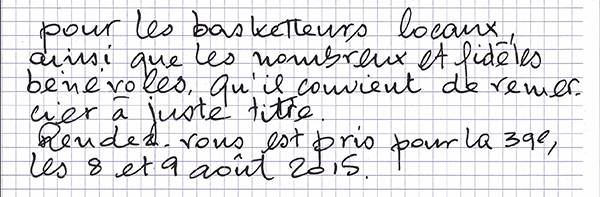 pour les basketteurs locaux,
ainsi que les nombreux et fidèles
bénévoles, qu'il convient de remer-
cier à juste titre.
Rendez-vous est pris pour la 39e,
les 8 et 9 août 2015.